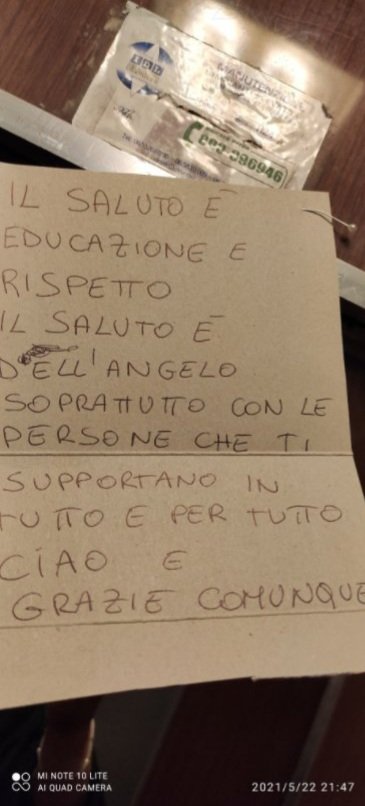 MANUTENZIONE
883-396946
IL SALUTO È
EDUCAZIONE E
RISPETTO
IL SALUTO È
DELL'ANGELO
SOPRATTUTTO CON LE
PERSONE CHE TI
SUPPORTANO IN
TUTTO E PER TUTTO
CIAO E
GRAZIE COMUNQUE
MI NOTE 10 LITE
AI QUAD CAMERA
2021/5/22 21:47